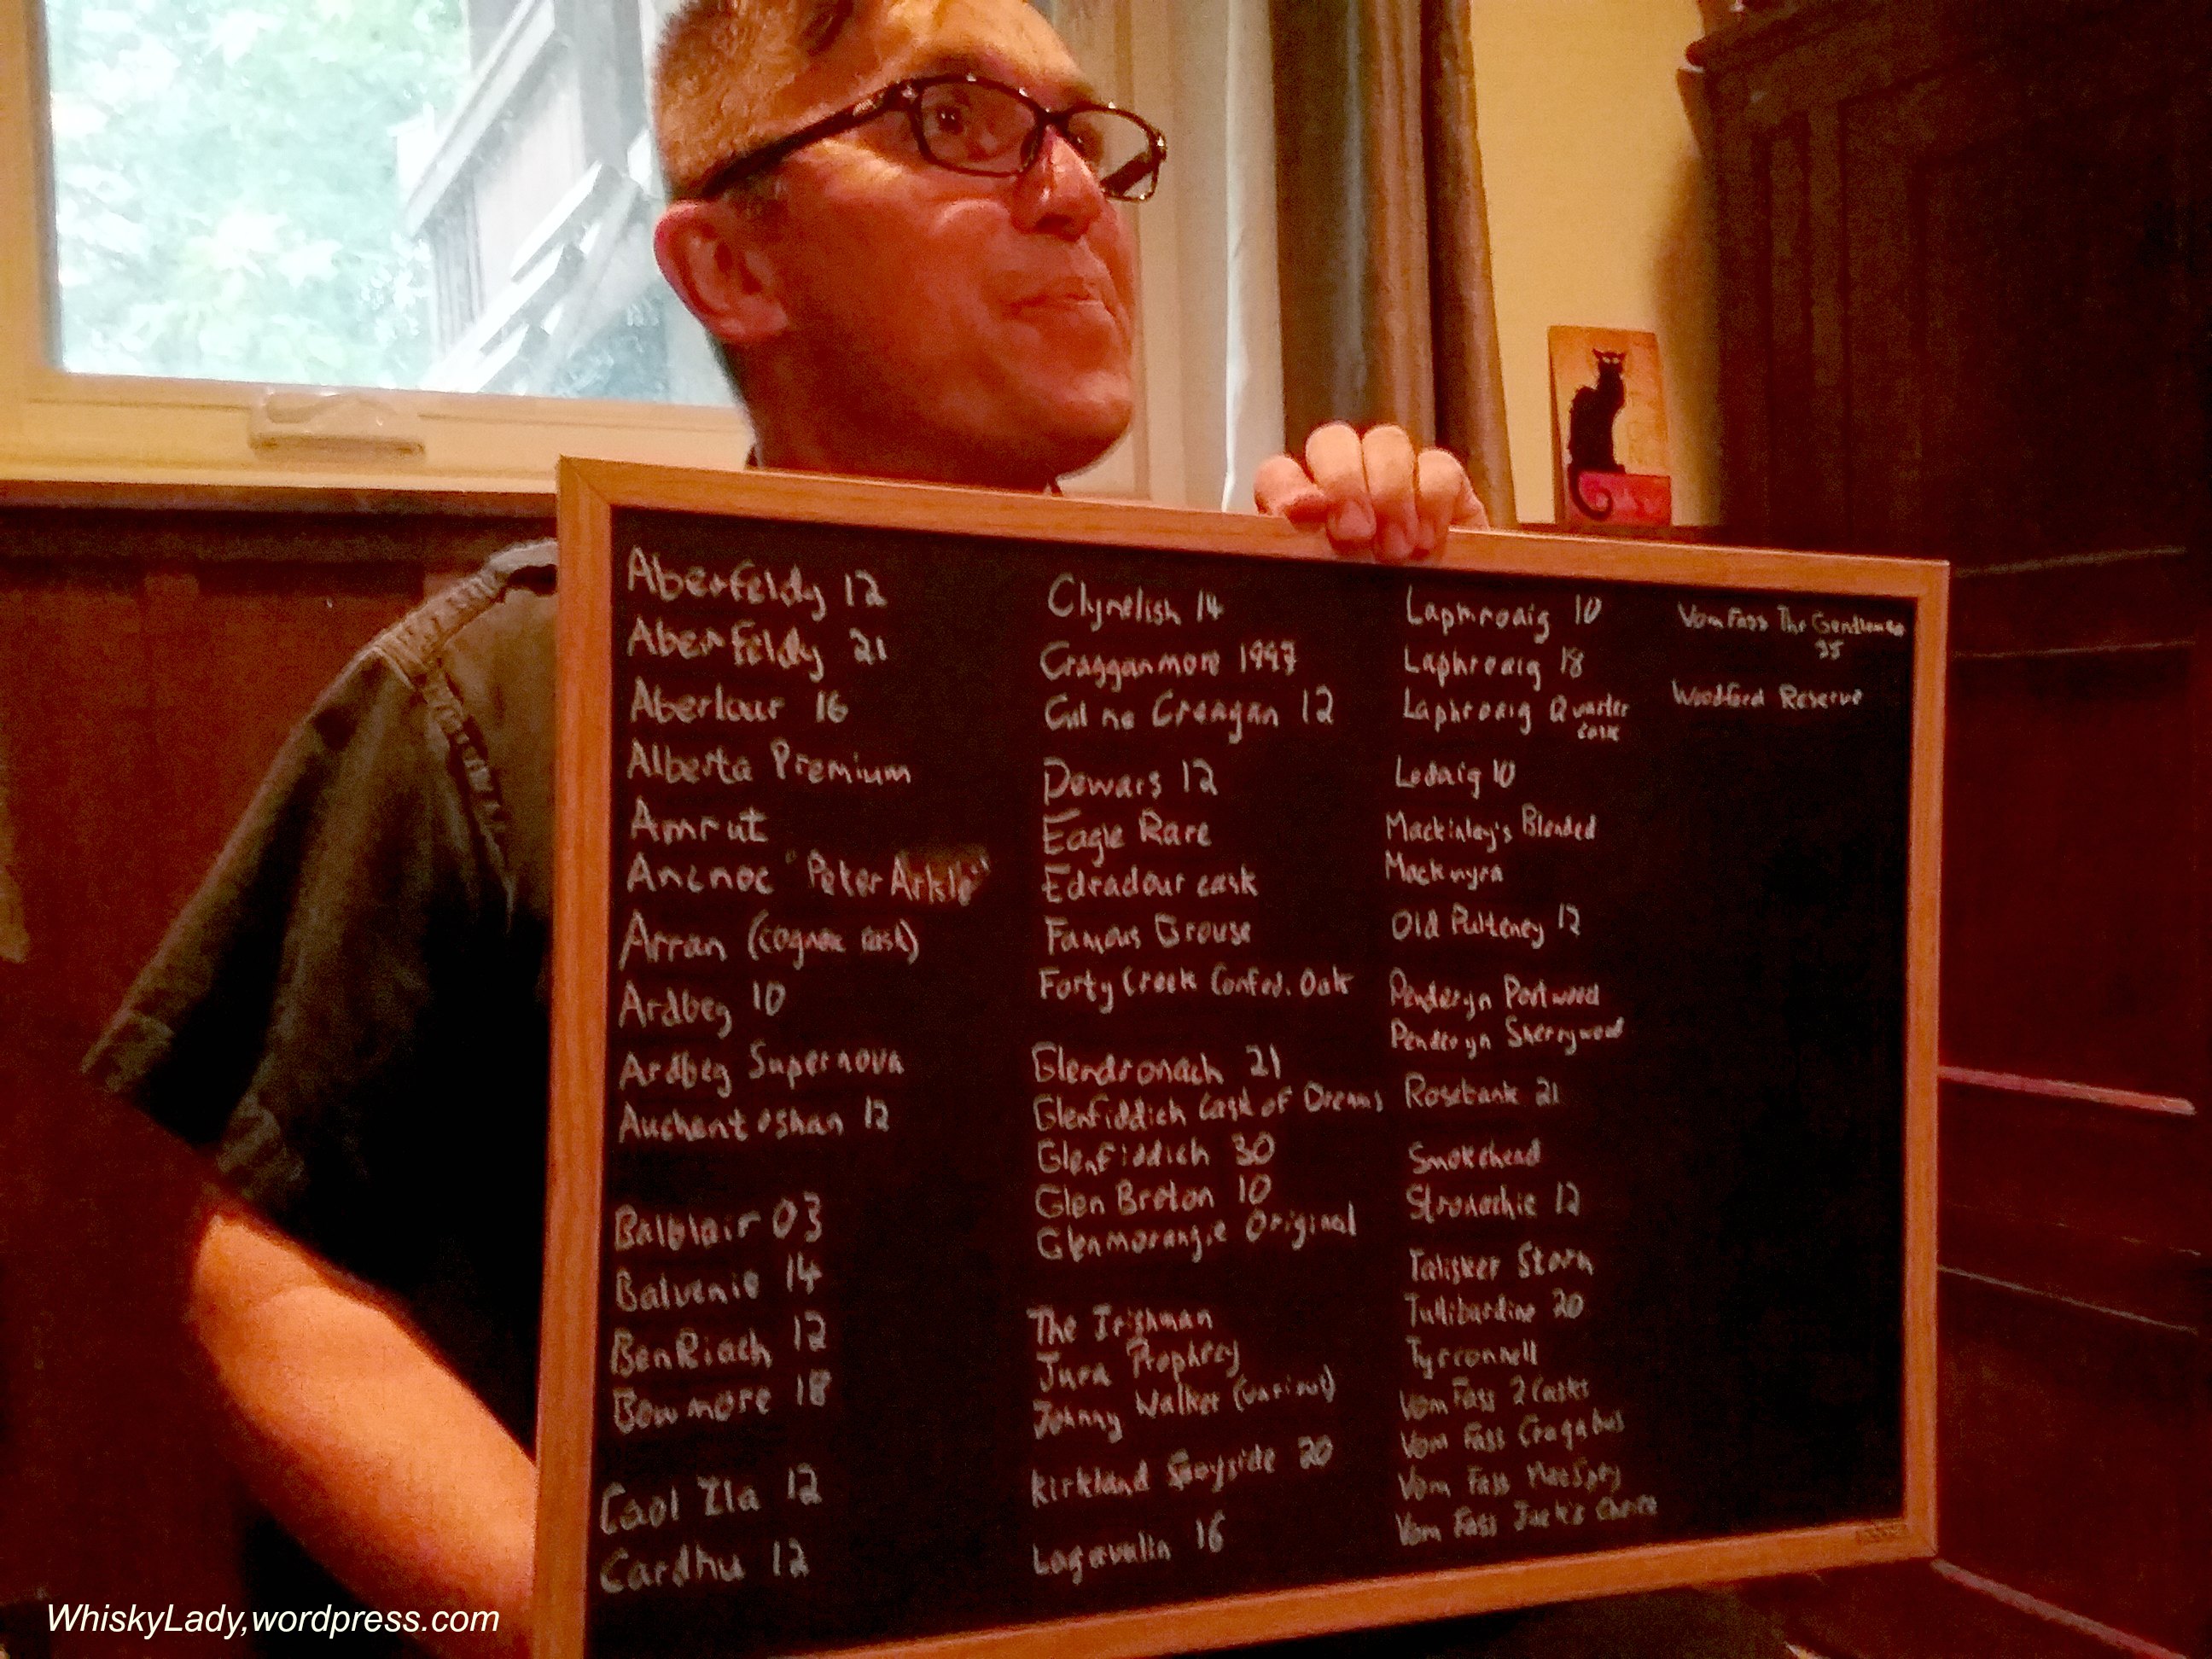 Aberfeldy 12
Aberfeldy 21
Aberlour 16
Alberta Premium
Amrut
Ancnoc "Peter Arkle"
Arran (cognac cask)
Ardbeg 10
Ardbeg Supernova
Auchentoshan 12
Balblair 03
Balvenie 14
BenRiach 12
Bowmore 18
Caol Ila 12
Cardhu 12
Clynelish 14
Cragganmore 1997
Cul na Creagan 12
Dewars 12
Eagle Rare
Edradour cask
Famous Grouse
Forty Creek Confed. Oak
Glendronach 21
Glenfiddich Cask of Dreams
Glenfiddich 30
Glen Breton 10
Glenmorangie Original
The Irishman
Jura Prophecy
Johnny Walker (various)
Kirkland Speyside 20
Lagavulin 16
Laphroaig 10
Laphroaig 18
Laphroaig Quarter
cask
Ledaig 10
Mackinlay's Blended
Mackmyra
Old Pulteney 12
Penderyn Portwood
Penderyn Sherrywood
Rosebank 21
Smokehead
Stronachie 12
Talisker Storm
Tullibardine 20
Tyrconnell
Vom Fass 2 Casks
Vom Fass Cragabus
Vom Fass MacSpey
Vom Fass Jack's Choice
Vom Fass The Gentleman
35
Woodford Reserve
WhiskyLady,wordpress.com